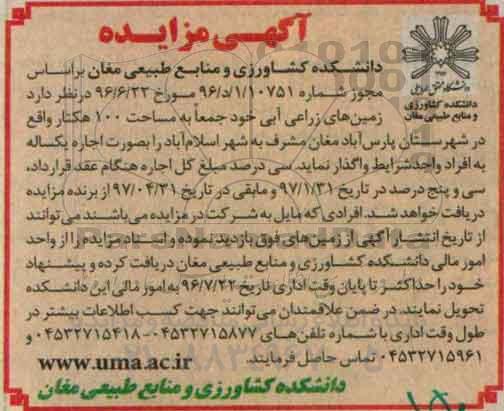 آگهی مزایده
دانشگاه محقق اردبیلی
دانشکده کشاورزی
و منابع طبیعی مغان
دانشکده کشاورزی و منابع طبیعی مغان براساس
مجوز شماره ۹۶/د/۱/۱۰۷۵۱ مورخ ۹۶/۶/۲۲ درنظر دارد
زمین‌های زراعی آبی خود جمعاً به مساحت ۱۰۰ هکتار واقع
در شهرستان پارس‌آباد مغان مشرف به شهر اسلام‌آباد را بصورت اجاره یکساله
به افراد واجدشرایط واگذار نماید. سی درصد مبلغ کل اجاره هنگام عقد قرارداد،
سی و پنج درصد در تاریخ ۹۷/۱/۳۱ و مابقی در تاریخ ۹۷/۰۴/۳۱ از برنده مزایده
دریافت خواهد شد. افرادی که مایل به شرکت در مزایده می‌باشند می‌توانند
از تاریخ انتشار آگهی از زمین‌های فوق بازدید نموده و اسناد مزایده را از واحد
امور مالی دانشکده کشاورزی و منابع طبیعی مغان دریافت کرده و پیشنهاد
خود را حداکثر تا پایان وقت اداری تاریخ ۹۶/۷/۲۲ به امور مالی این دانشکده
تحویل نمایند. در ضمن علاقمندان می‌توانند جهت کسب اطلاعات بیشتر در
طول وقت اداری با شماره تلفن‌های ۰۴۵۳۲۷۱۵۸۷۷-۰۴۵۳۲۷۱۵۴۱۸ و
۰۴۵۳۲۷۱۵۹۶۱ تماس حاصل فرمایند.
www.uma.ac.ir
دانشکده کشاورزی و منابع طبیعی مغان